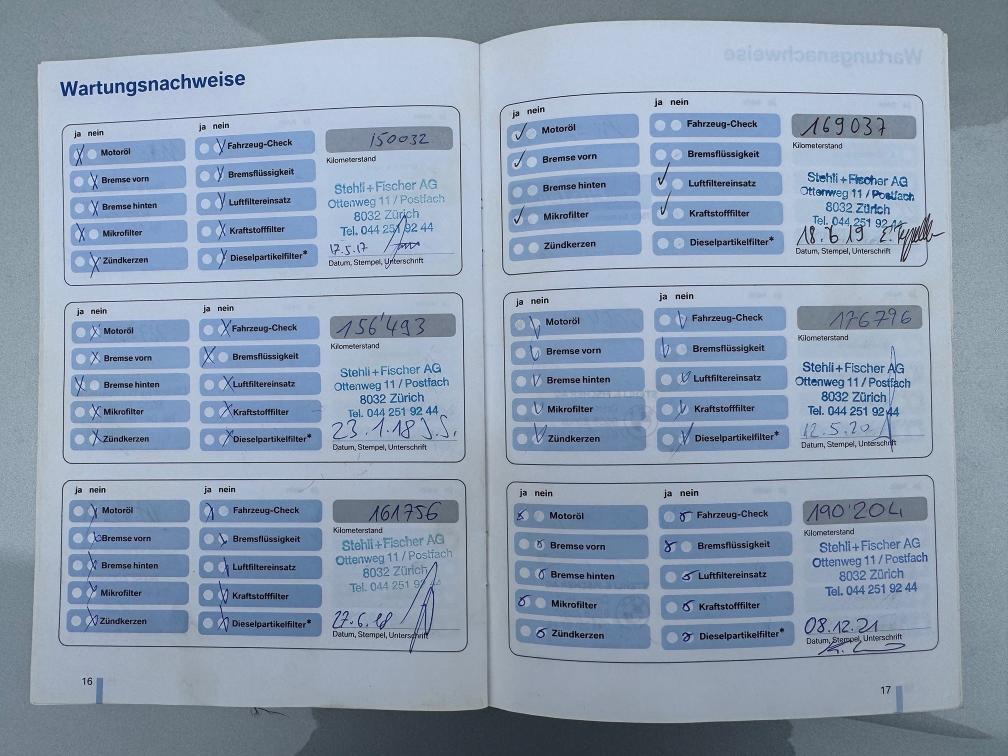 Wartungsnachweise
ja nein
ja nein
Motoröl
Bremse vorn
Bremse hinten
Mikrofilter
Zündkerzen
Fahrzeug-Check
Bremsflüssigkeit
Luftfiltereinsatz
Kraftstofffilter
Dieselpartikelfilter*
150032
Kilometerstand
Stehli+Fischer AG
Ottenweg 11 / Postfach
8032 Zürich
Tel. 044 251 92 44
17.5.17
Datum, Stempel, Unterschrift
ja nein
ja nein
Motoröl
Bremse vorn
Bremse hinten
Mikrofilter
Zündkerzen
Fahrzeug-Check
Bremsflüssigkeit
Luftfiltereinsatz
Kraftstofffilter
Dieselpartikelfilter*
156'493
Kilometerstand
Stehli+Fischer AG
Ottenweg 11 / Postfach
8032 Zürich
Tel. 044 251 92 44
23.1.18 J.S.
Datum, Stempel, Unterschrift
ja nein
ja nein
Motoröl
Bremse vorn
Bremse hinten
Mikrofilter
Zündkerzen
Fahrzeug-Check
Bremsflüssigkeit
Luftfiltereinsatz
Kraftstofffilter
Dieselpartikelfilter*
161756
Kilometerstand
Stehli+Fischer AG
Ottenweg 11 / Postfach
8032 Zürich
Tel. 044 251 92
27.6.18
Datum, Stempel, Unterschrift
16
ja nein
ja nein
Motoröl
Bremse vorn
Bremse hinten
Mikrofilter
Zündkerzen
Fahrzeug-Check
Bremsflüssigkeit
Luftfiltereinsatz
Kraftstofffilter
Dieselpartikelfilter*
169037
Kilometerstand
Stehli+Fischer AG
Ottenweg 11 / Postfach
8032 Zürich
Tel. 044 251 92 44
18.6.19
Datum, Stempel, Unterschrift
ja nein
ja nein
Motoröl
Bremse vorn
Bremse hinten
Mikrofilter
Zündkerzen
Fahrzeug-Check
Bremsflüssigkeit
Luftfiltereinsatz
Kraftstofffilter
Dieselpartikelfilter*
176796
Kilometerstand
Stehli+Fischer AG
Ottenweg 11 / Postfach
8032 Zürich
Tel. 044 251 92 44
12.5.20
Datum, Stempel, Unterschrift
ja nein
ja nein
Motoröl
Bremse vorn
Bremse hinten
Mikrofilter
Zündkerzen
Fahrzeug-Check
Bremsflüssigkeit
Luftfiltereinsatz
Kraftstofffilter
Dieselpartikelfilter*
190'204
Kilometerstand
Stehli+Fischer AG
Ottenweg 11 / Postfach
8032 Zürich
Tel. 044 251 92 44
08.12.21
Datum, Stempel, Unterschrift
17